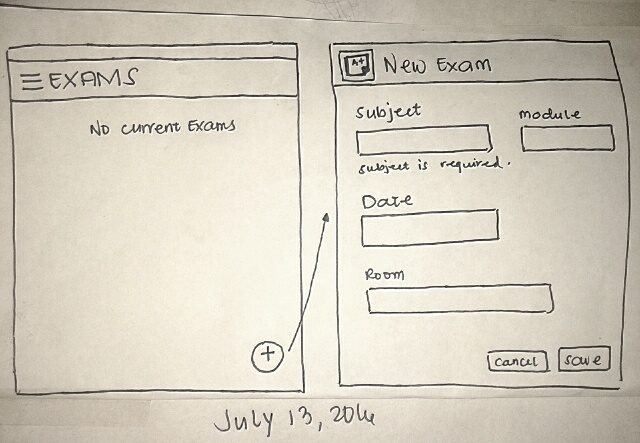 EXAMS
No current Exams
+
A+
New Exam
Subject
module
subject is required.
Date
Room
cancel
save
July 13, 2016